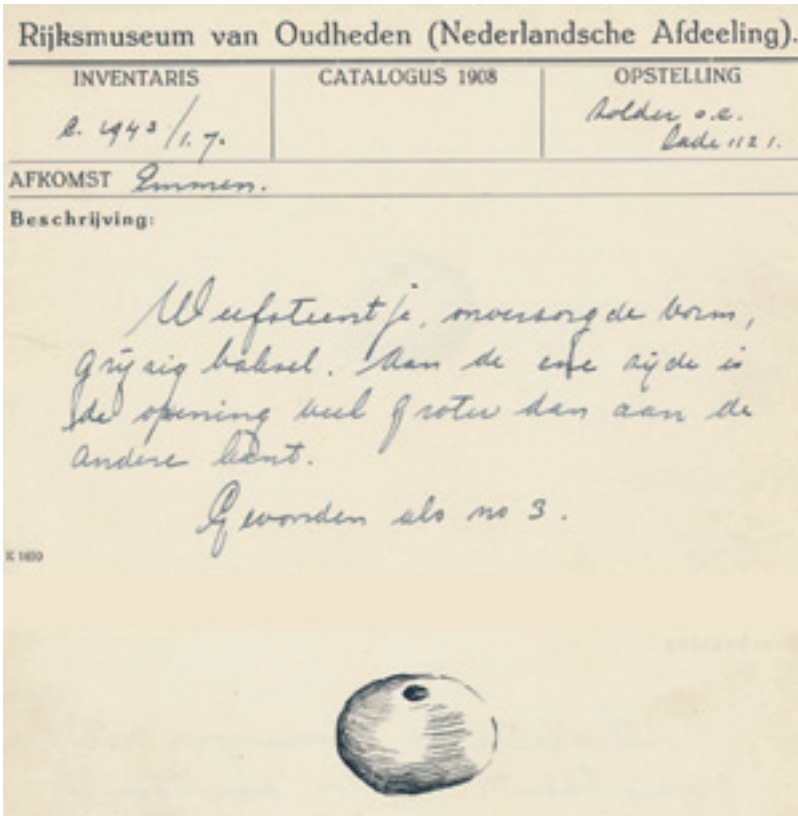 Rijksmuseum van Oudheden (Nederlandsche Afdeeling).
INVENTARIS
CATALOGUS 1908
OPSTELLING
e. 1943/1.7.
Zolder o.e.
Lade 1121.
AFKOMST Emmen.
Beschrijving:
Weefsteentje, onverzorgde vorm,
grijzig baksel. Aan de ene zijde is
de opening veel groter dan aan de
andere kant.
Gevonden als no 3.